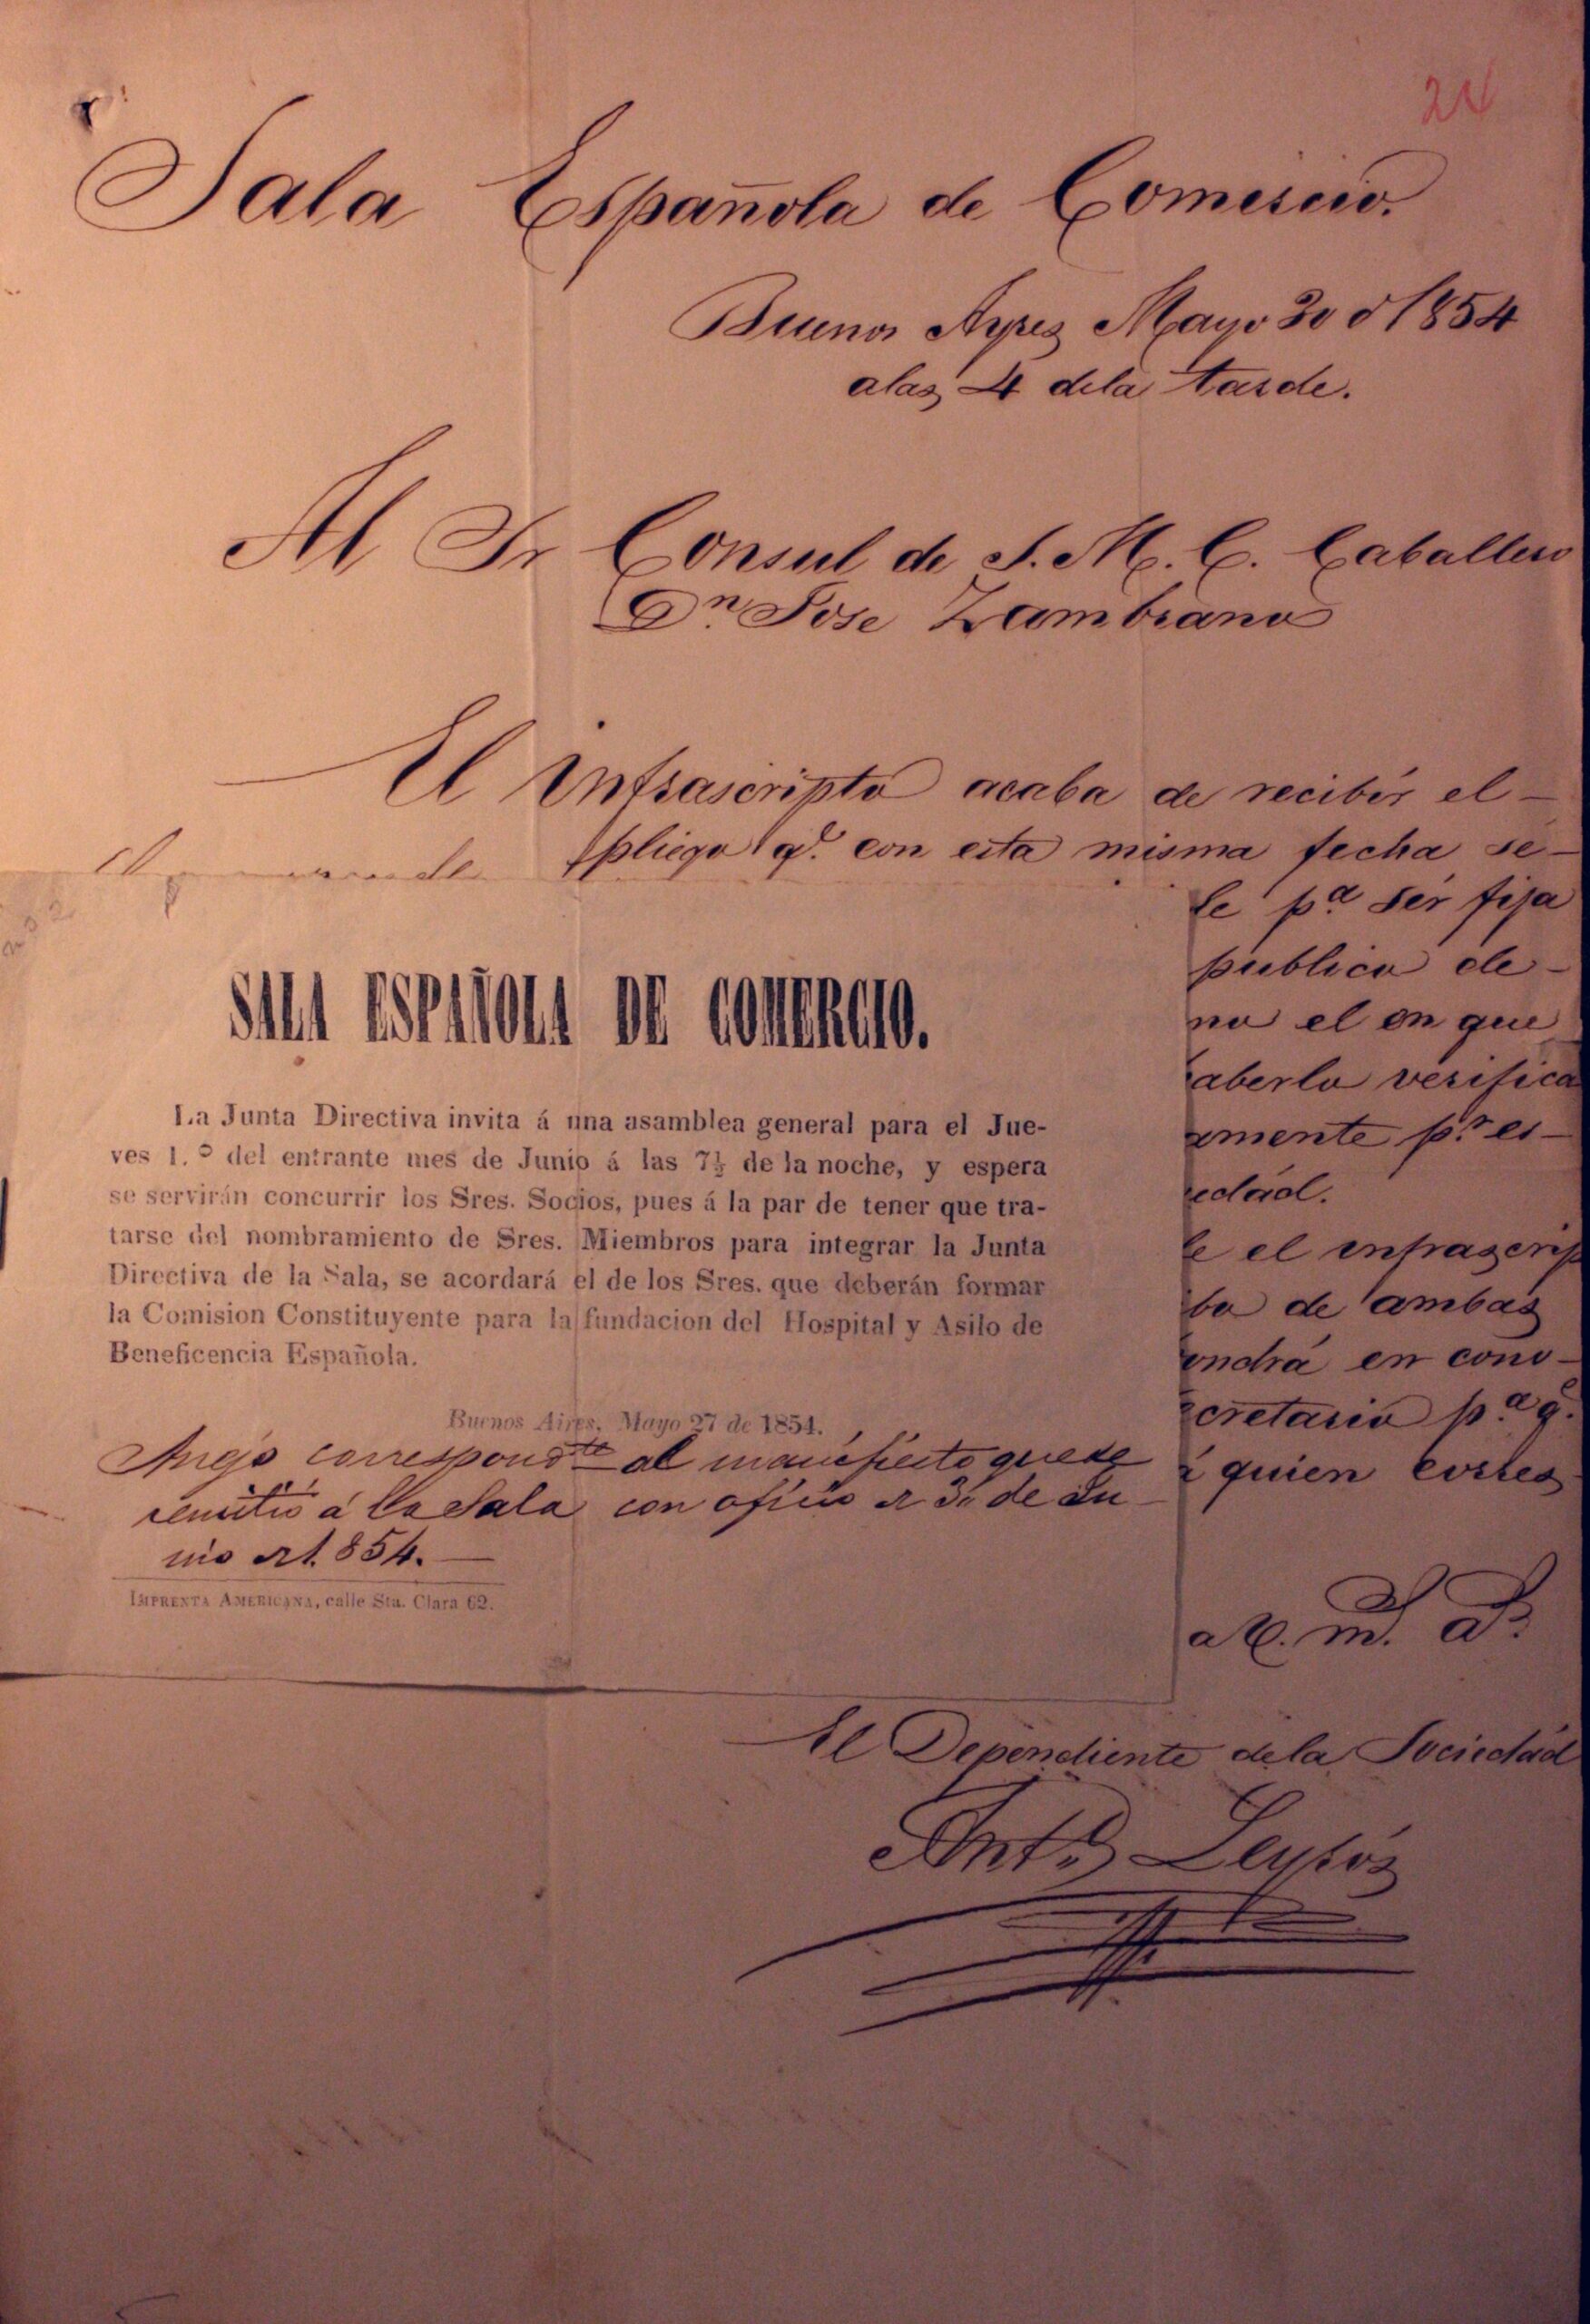 24
Sala Española de Comercio.
Buenos Ayres Mayo 30 d 1854
alas 4 dela tarde.
Al Sr Consul de S. M. C. Caballero
Dn. Jose Zambrano
El infrascripto acaba de recibir el
pliego q.e con esta misma fecha se
le p.a ser fija
publico de
no el en que
aberlo verifica
amente p.r es
edád.
le el infrascrip
bo de ambas
ondrá en cono
cretario p.a q.e
á quien corres
a V. m. a.s
El Dependiente dela Sociedád
Ant.o
SALA ESPAÑOLA DE COMERCIO.
La Junta Directiva invita á una asamblea general para el Jue-
ves 1.º del entrante mes de Junio á las 7½ de la noche, y espera
se servirán concurrir los Sres. Socios, pues á la par de tener que tra-
tarse del nombramiento de Sres. Miembros para integrar la Junta
Directiva de la Sala, se acordará el de los Sres. que deberán formar
la Comision Constituyente para la fundacion del Hospital y Asilo de
Beneficencia Española.
Buenos Aires, Mayo 27 de 1854.
Anejo correspond.te al manifiesto que se
remitió á la Sala con oficio de 30 de Ju
nio de 1.854.
IMPRENTA AMERICANA, calle Sta. Clara 62.